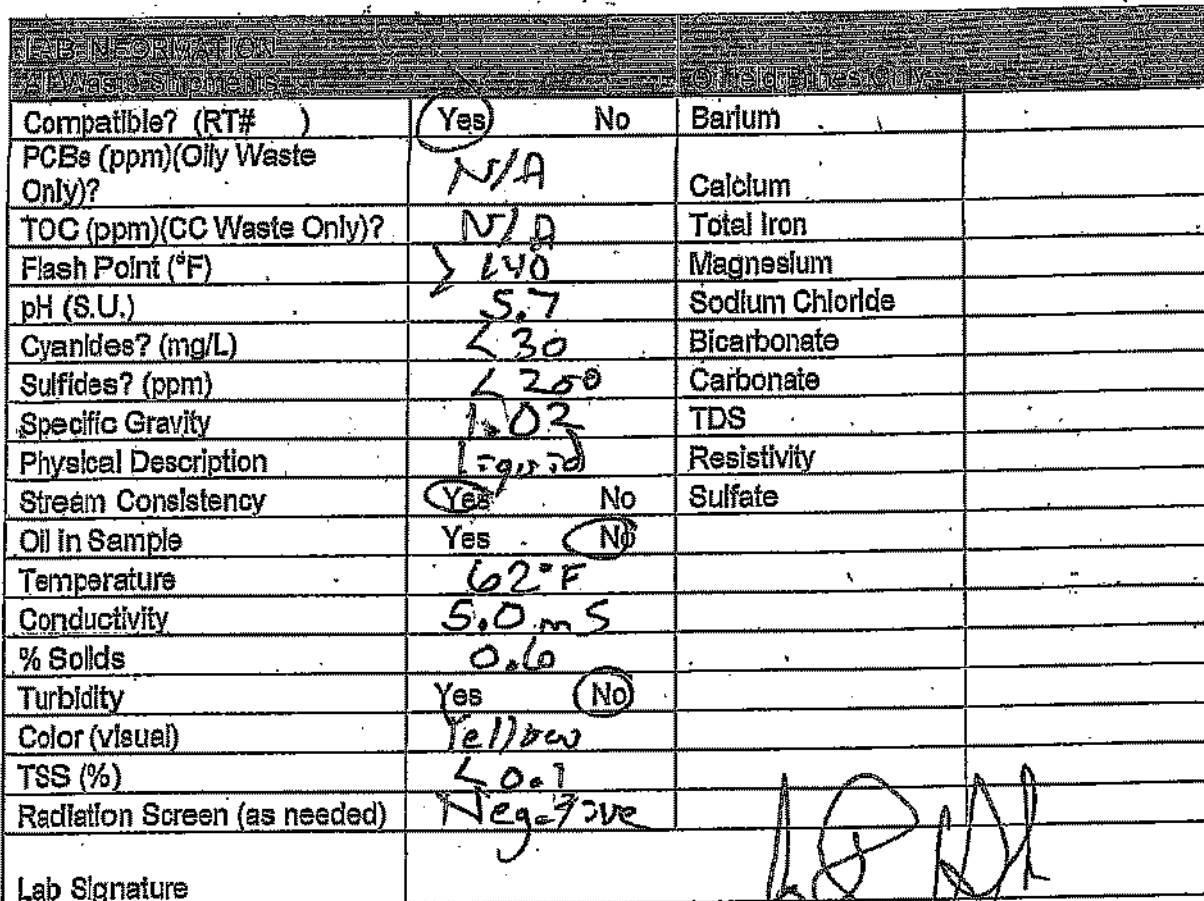 LAB INFORMATION
All Waste Shipments Oilfield Brines Only
Compatible? (RT# ) Yes No Barium
PCBs (ppm)(Oily Waste
Only)? N/A Calcium
TOC (ppm)(CC Waste Only)? N/A Total Iron
Flash Point (°F) > 140 Magnesium
pH (S.U.) 5.7 Sodium Chloride
Cyanides? (mg/L) < 30 Bicarbonate
Sulfides? (ppm) < 200 Carbonate
Specific Gravity 1.02 TDS
Physical Description Liquid Resistivity
Stream Consistency Yes No Sulfate
Oil in Sample Yes No
Temperature 62°F
Conductivity 5.0 mS
% Solids 0.6
Turbidity Yes No
Color (visual) Yellow
TSS (%) < 0.1
Radiation Screen (as needed) Negative
Lab Signature